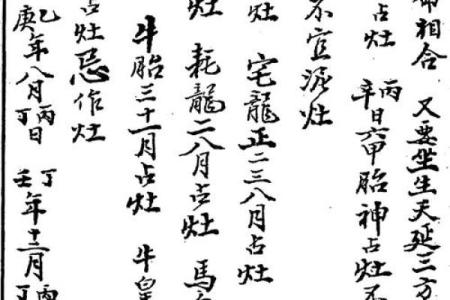 命相合 又要坐生天延三方
占灶 丙辛日六甲胎神占灶不
不宜泥灶
灶 宅龍正二三八月占灶
灶 耗龍二八月占灶 馬
牛胎三十一月占灶 牛皇
占灶忌作灶
乙庚年八月丙丁日 丁壬年十二月丙丁